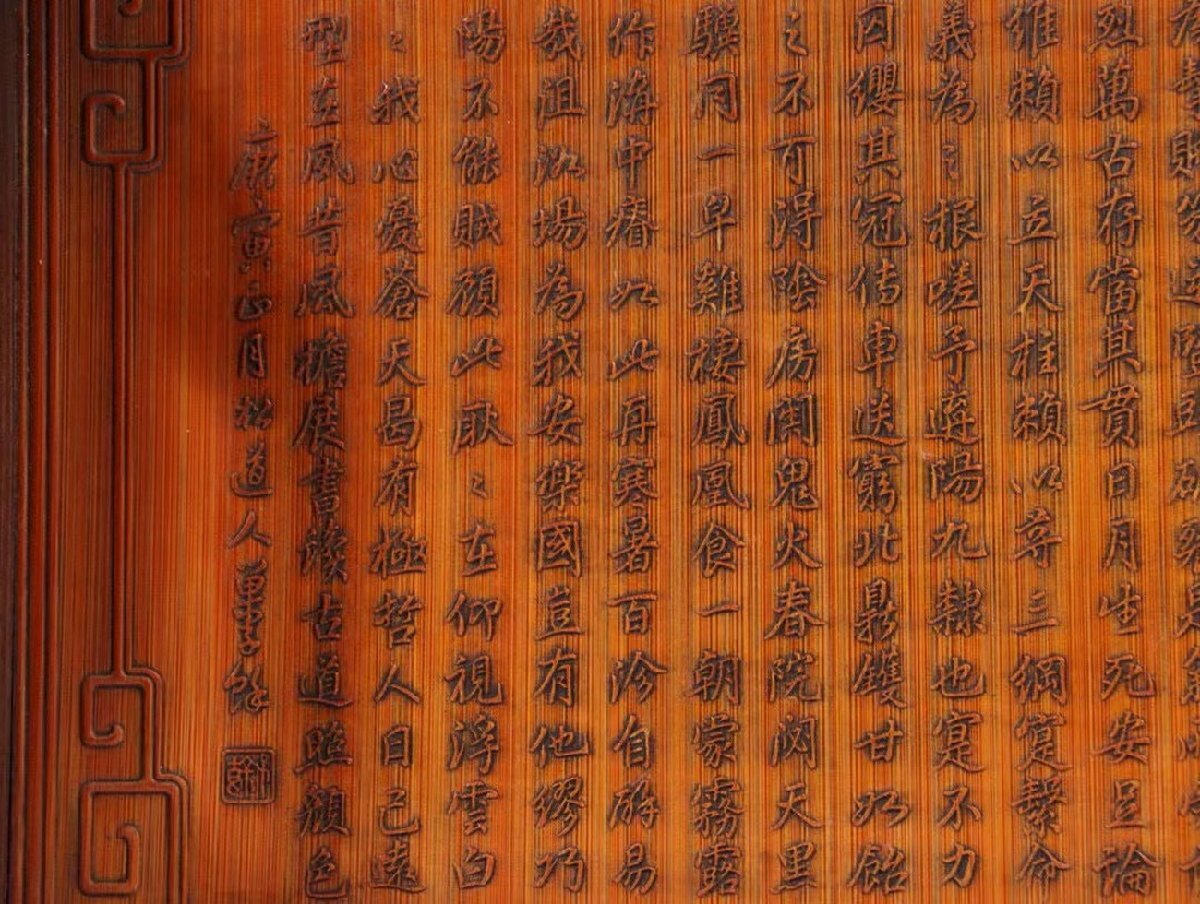 烈萬古存當其貫日月生死安足論
維賴以立天柱賴以尊三綱寔繫命
義為之根嗟予遘陽九隸也寔不力
囚纓其冠傳車送窮北鼎鑊甘如飴
之不可得陰房闃鬼火春院閟天黑
驥同一皁雞棲鳳凰食一朝蒙霧露
作溝中瘠如此再寒暑百沴自辟易
哉沮洳場為我安樂國豈有他繆巧
陽不能賊顧此耿々在仰視浮雲白
々我心憂蒼天曷有極哲人日已遠
型在夙昔風檐展書讀古道照顏色
庚寅正月松道人